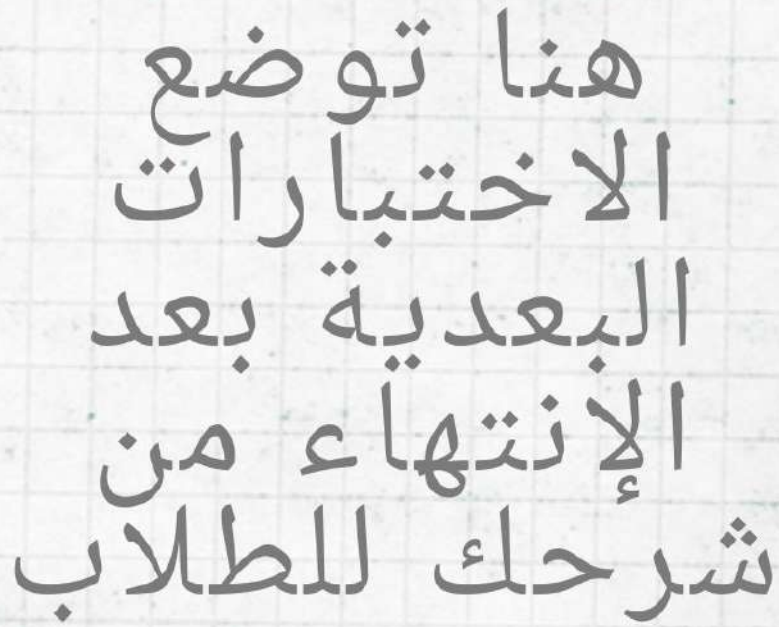 هنا توضع
الاختبارات
البعدية بعد
الإنتهاء من
شرحك للطلاب